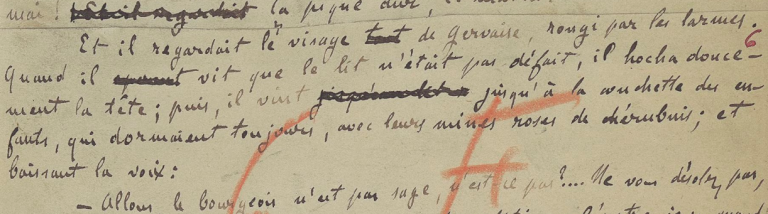 mai ! la pique dur,
Et il regardait le visage de Gervaise, rougi par les larmes.
6
Quand il vit que le lit n'était pas défait, il hocha douce-
ment la tête ; puis, il vint jusqu'à la couchette des en-
fants, qui dormaient toujours, avec leurs mines roses de chérubins ; et
baissant la voix :
— Allons le bourgeois n'est pas sage, n'est-ce pas ?.... Ne vous désolez pas,